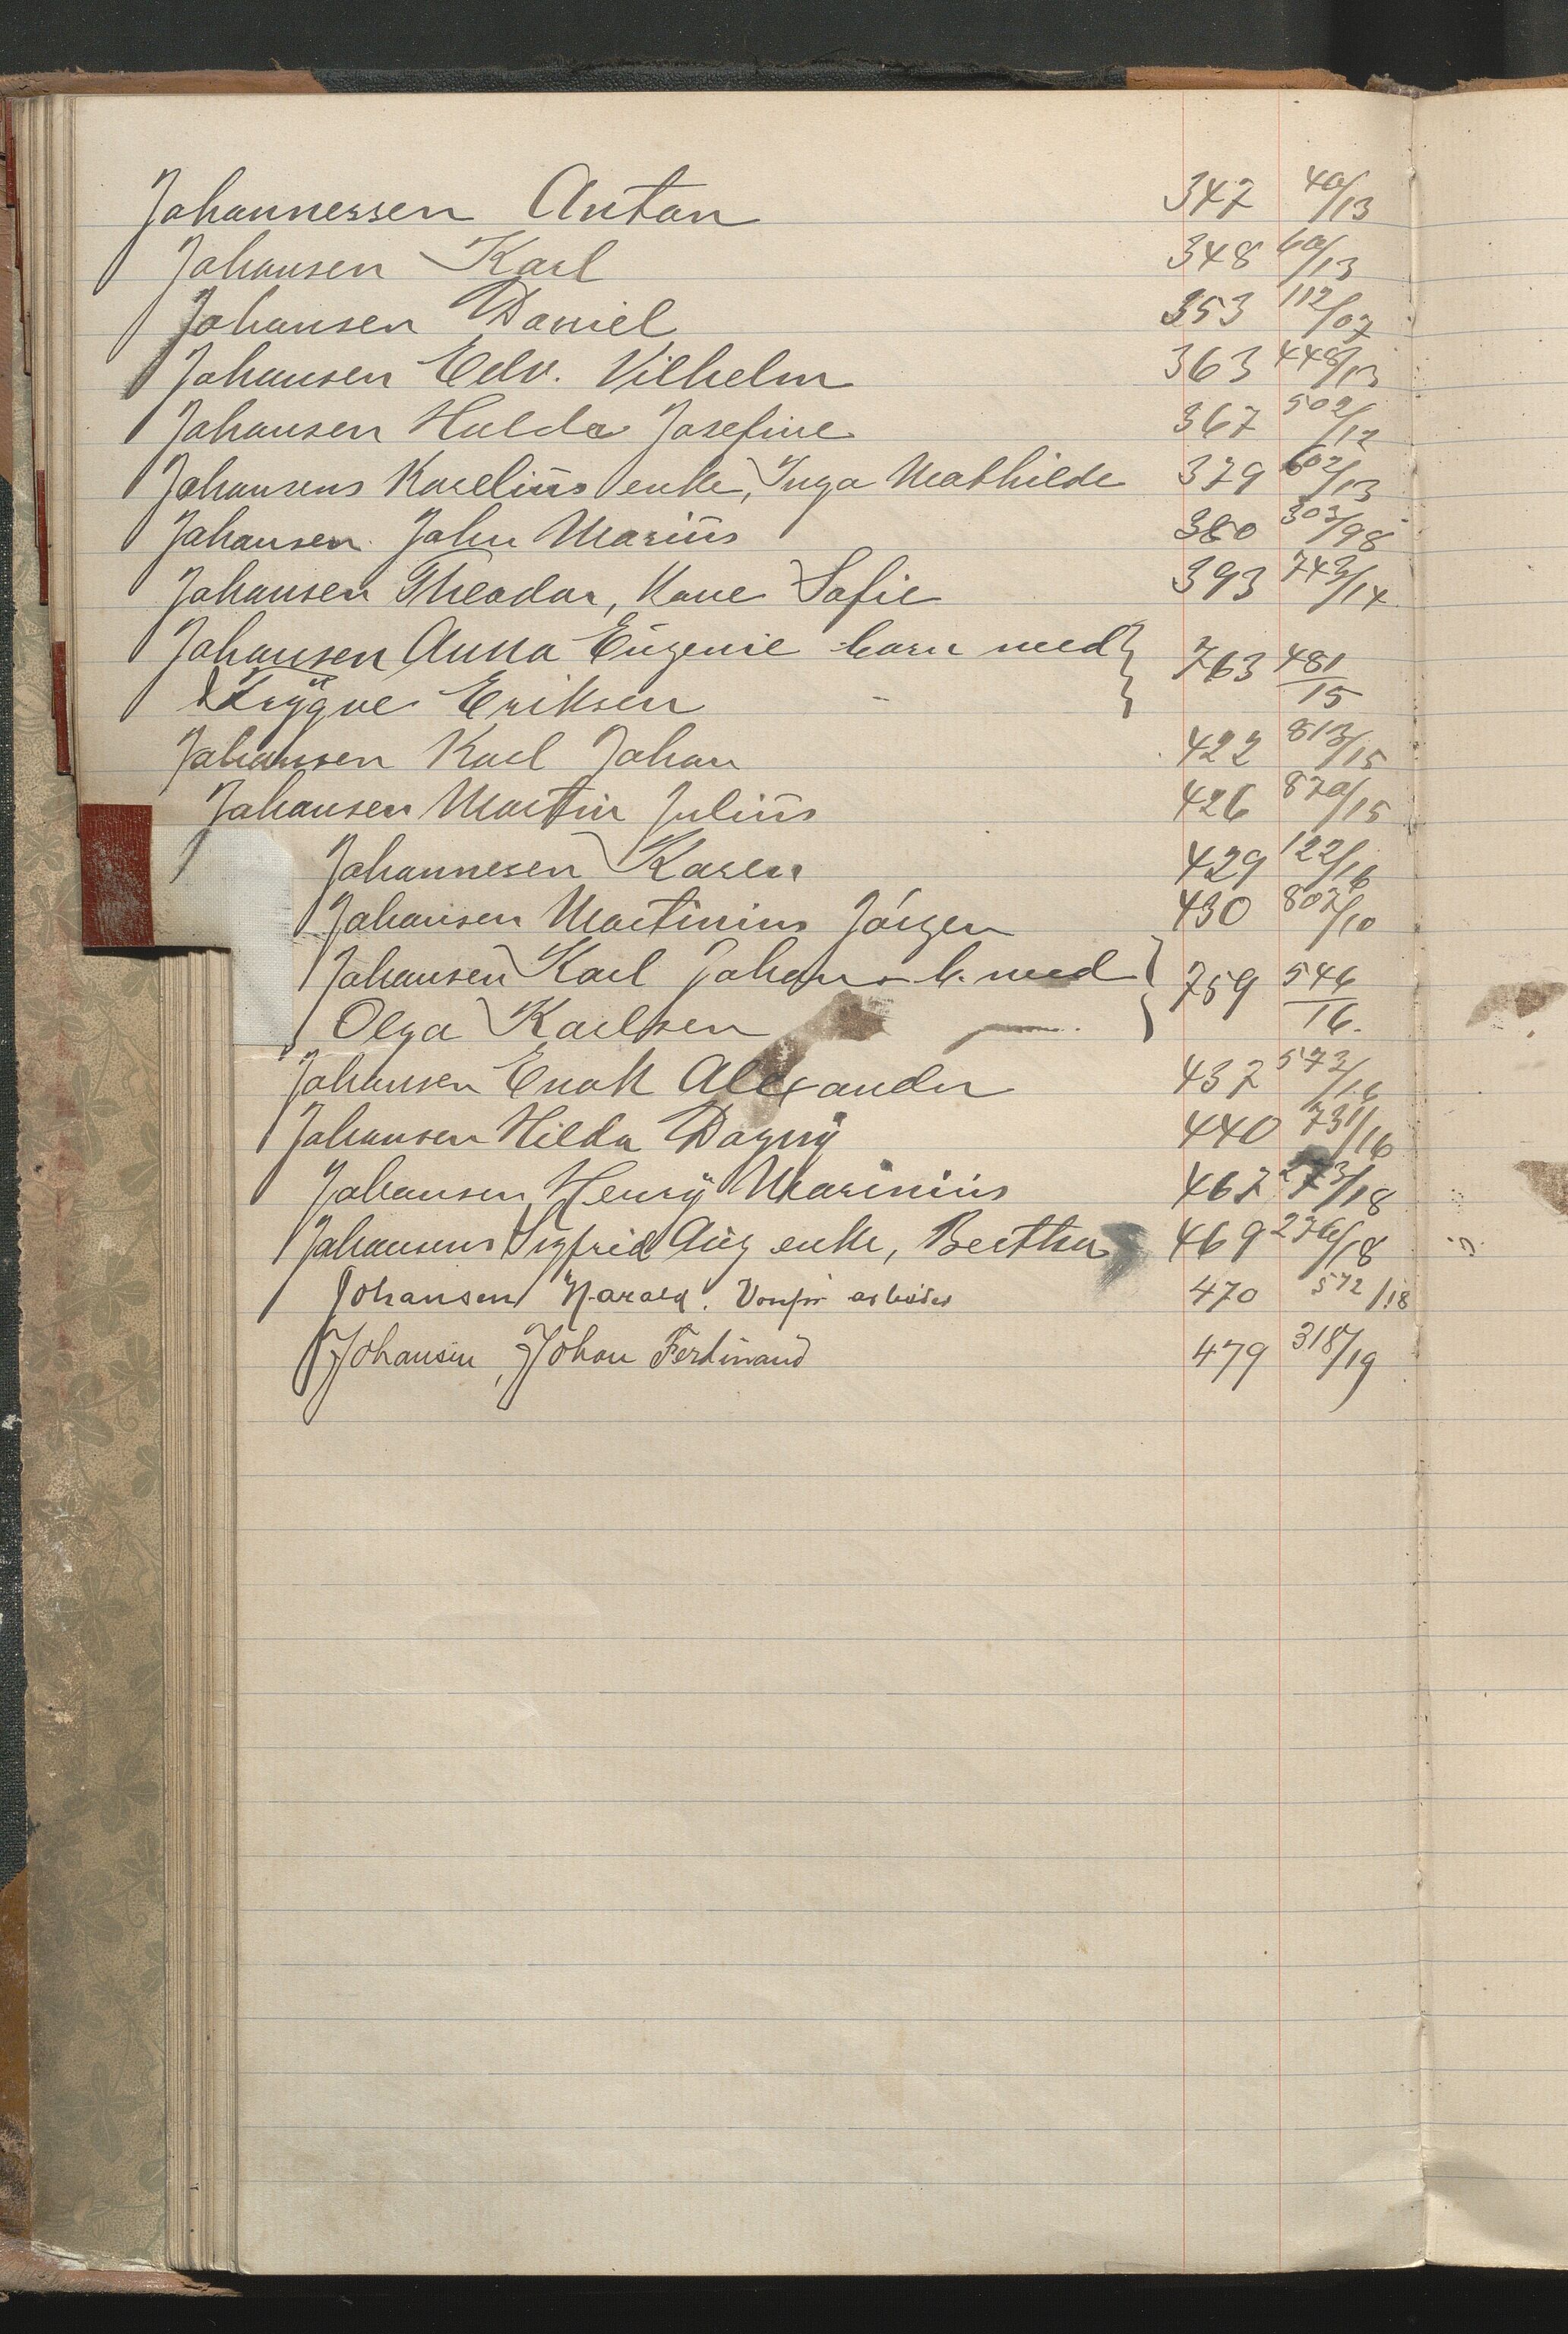 Johannessen Anton 347 40/13
Johansen Karl 348 60/13
Johansen Daniel 353 112/07
Johansen Edv. Vilhelm 363 448/13
Johansen Hulda Josefine 367 502/12
Johansens Karelius enke, Inga Mathilde 379 602/13
Johansen John Marius 380 303/98
Johansen Theodor, Kone Sofie 393 743/14
Johansen Anna Eugenie barn med } 763 481/15
Trygve Eriksen - }
Johansen Karl Johan 422 813/15
Johansen Martin Julius 426 870/15
Johannesen Karen 429 122/16
Johansen Martinius Jörgen 430 807/10
Johansen Karl Johan - b. med } 759 546/16.
Olga Karlsen }
Johansen Enok Alexander 437 573/16
Johansen Hilda Dagny 440 731/16
Johansen Henry Marinius 467 273/18
Johansens Sigfrid Aug enke, Berthe 469 276/18
Johansen Harald. 470 572/18
Johansen, Johan Ferdinand 479 318/19